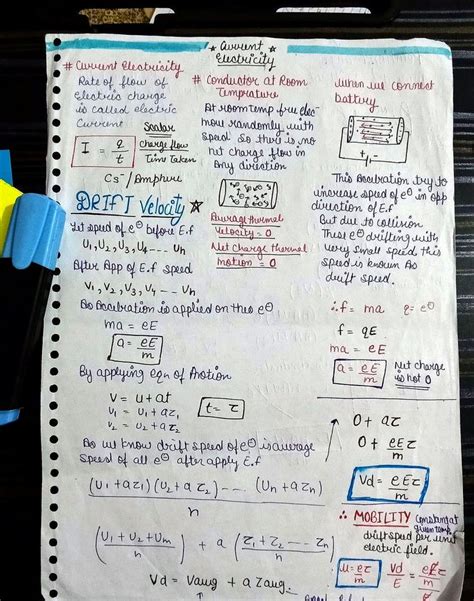 * Current *
Electricity
# Current Electricity
Rate of flow of
Electric charge
is called electric
Current
I = q/t
Scalar
charge flow
Time Taken
Cs⁻/Ampure
# Conductor at Room
Temprature
At room temp free elec-
move randomly with
speed so there is no
net charge flow in
any direction
Average thermal
velocity = 0
Net charge thermal
motion = 0
When we connect
battery
This acceleration try to
increase speed of e⊖ in opp
direction of E.f
But due to collision
These e⊖ drifting with
very small speed this
speed is known as
drift speed.
DRIFT Velocity ☆
let speed of e⊖ before E.f
U₁, U₂, U₃, U₄ --- Un
After App of E.f speed
V₁, V₂, V₃, V₄ --- Vn
So acceleration is applied on the e⊖
ma = eE
a = eE/m
By applying eqn of motion
V = u + at
v₁ = u₁ + aτ₁
v₂ = u₂ + aτ₂
t = τ
So we know drift speed of e⊖ is average
speed of all e⊖ after apply E.f
(U₁ + aτ1) (U₂ + aτ₂) --- (Un + aτn)
n
(U₁ + U₂ + Um / n) + a (τ₁ + τ₂ --- τn / n)
Vd = Vavg + aτavg.
∴ f = ma q = e⊖
f = qE
ma = eE
a = eE/m
Net charge
is not 0
0 + aτ
0 + eEτ/m
Vd = eEτ/m
∴ MOBILITY
Constant at
given temp
drift speed per unit
electric field.
μ = eτ/m
Vd/E = eEτ/mE